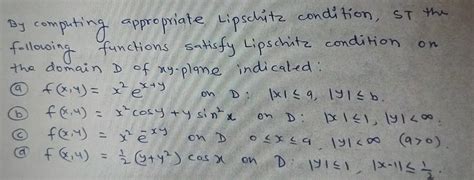 By computing appropriate Lipschitz condition, ST the
following functions satisfy Lipschitz condition on
the domain D of xy-plane indicated:
ⓐ f(x,y) = x² e^{x+y} on D: |x| ≤ a, |y| ≤ b.
ⓑ f(x,y) = x² cosy + y sin² x on D: |x| ≤ 1, |y| < ∞.
ⓒ f(x,y) = x² e^{-x+y} on D 0 ≤ x ≤ a, |y| < ∞ (a>0).
ⓓ f(x,y) = ½ (y+y²) cos x on D: |y| ≤ 1, |x-1| ≤ ½.